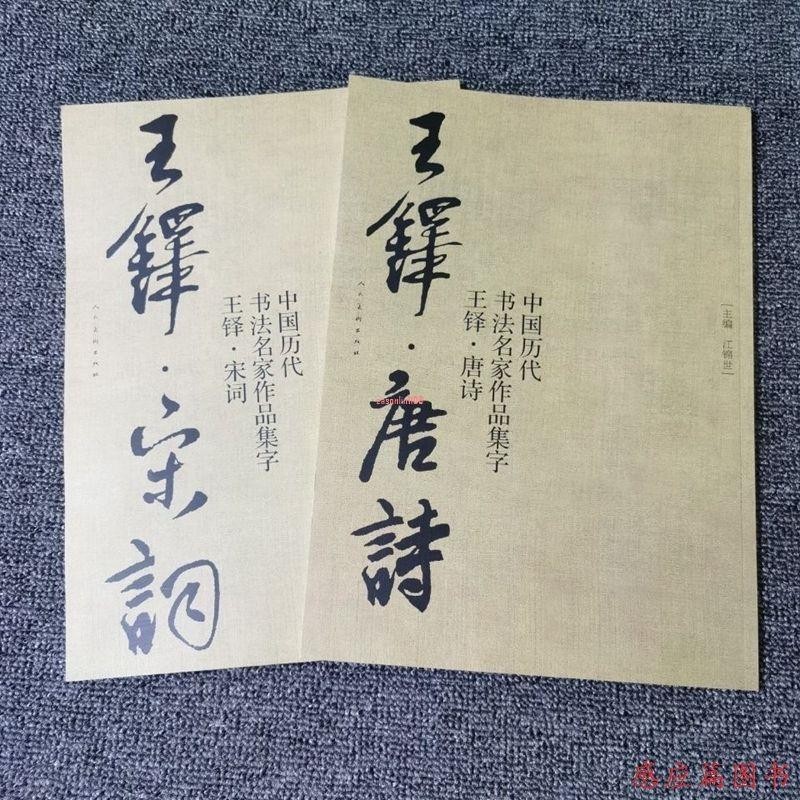 王鐸·宋詞
中国历代
书法名家作品集字
王铎·宋词
人民美术出版社
王鐸·唐詩
中国历代
书法名家作品集字
王铎·唐诗
人民美术出版社
[主编 江锦世]
感应篇图书